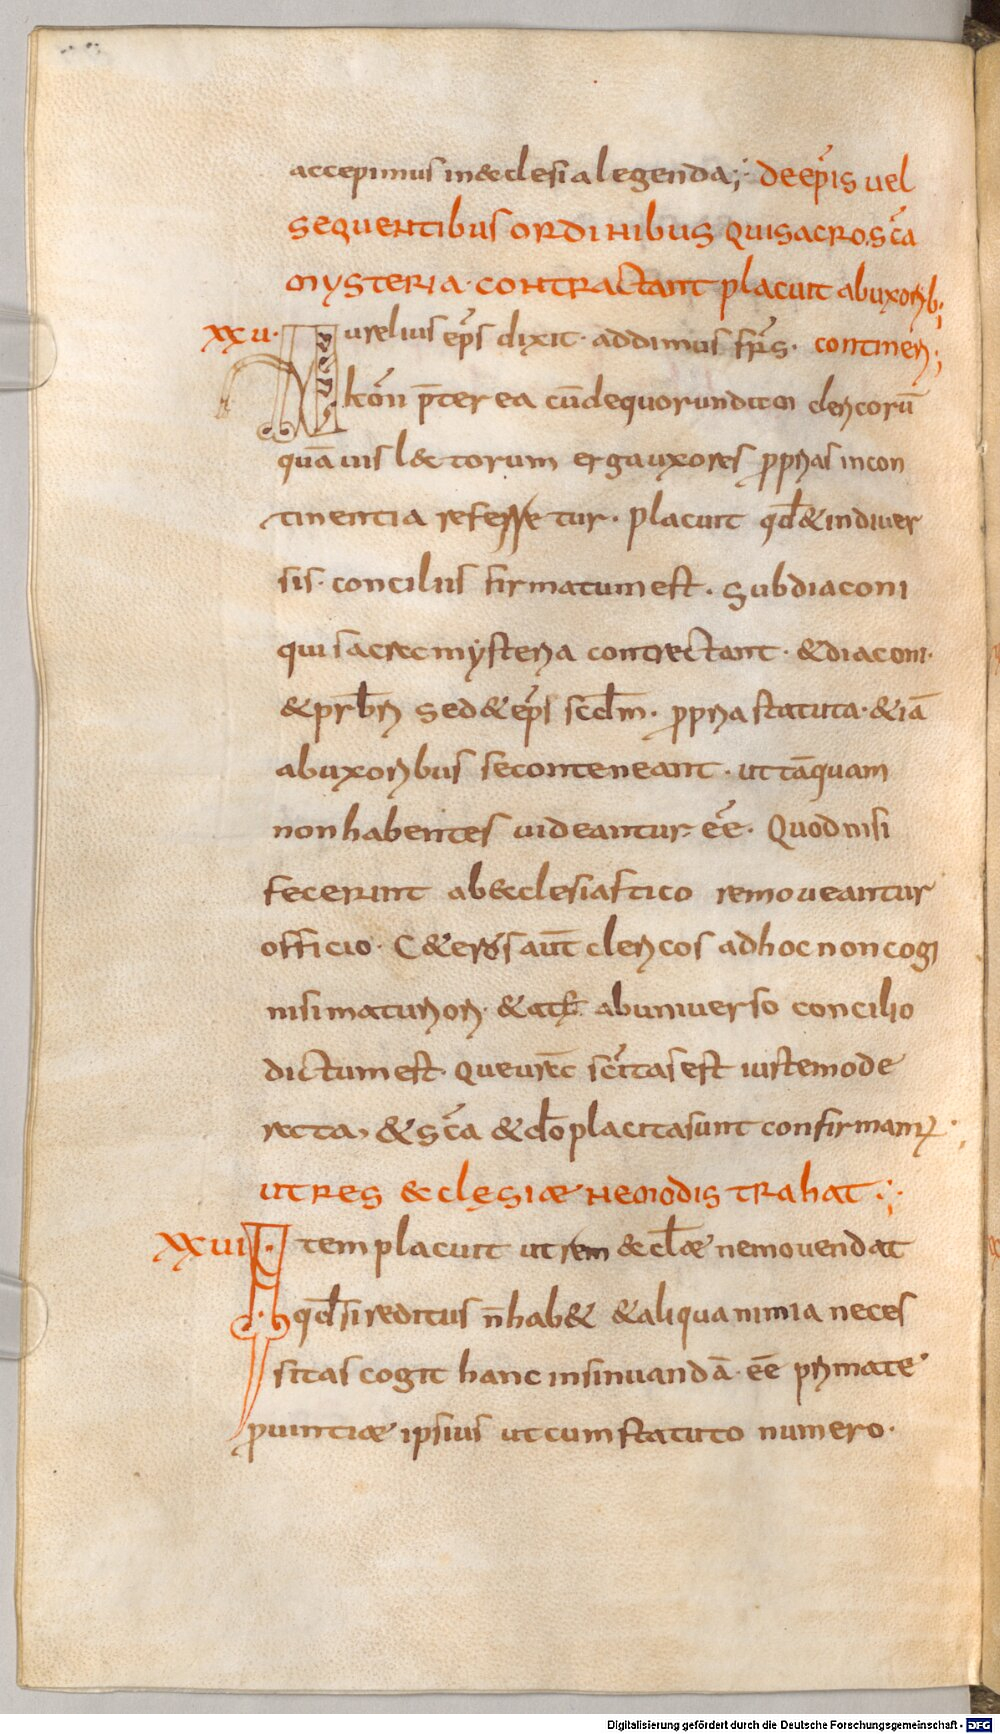 accepimus in &clesia legenda; de ep̄is uel
sequentibus ordinibus qui sacro sc̄a
mysteria · contractant placuit ab uxorib;
xxu · Aurelius ep̄s dixit · addimus fr̄s · contineri;
k̄mi p̄terea cū de quorundam clericorū
quāuis l&torum erga uxores p̄prias incon
tinentia referretur · placuit qd̄ & in diuer
sis · conciliis firmatum est · Subdiaconi
qui sacrec mysteria contrectant · & diaconi ·
& prb̄ri sed & ep̄s scd̄m · p̄pria statuta · & iā
ab uxoribus se conteneant · ut tāquam
non habentes uideantur ēe · Quod nisi
fecerint ab &clesiastico remoueantur
officio · C&eros aut̄ clericos ad hoc non cogi
nisi maturiori · & at ab uniuerso concilio
dictum est · que ur̄ec sc̄itas est iuste mode
recta, & sc̄a & d̄o placita sunt confirmam̄ ·
ut res &clesiae nemo distrahat :·
xxui Item placuit ut rem &cl̄ae nemo uendat
qd̄ si reditus n̄ hab& & aliqua nimia neces
sitas cogit hanc insinuandā · ēe primate
p̄uintiae ipsius ut cum statuto numero ·
Digitalisierung gefördert durch die Deutsche Forschungsgemeinschaft - DFG